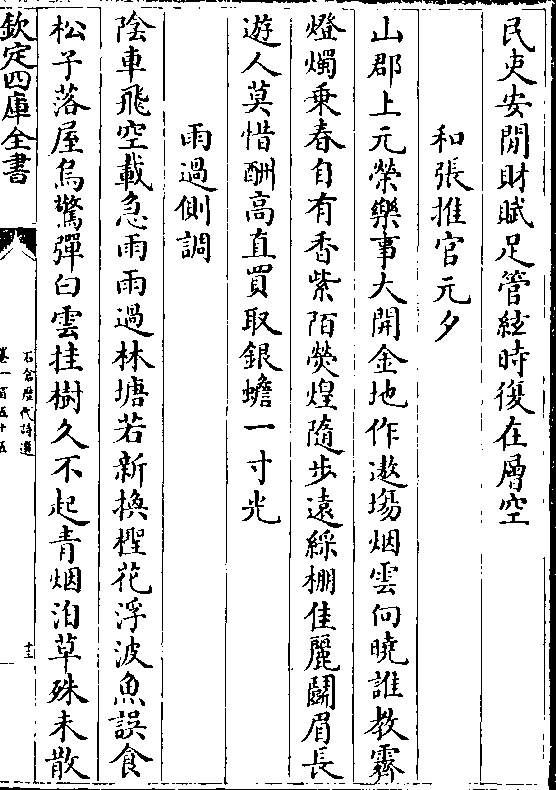 民吏安閒財賦足管絃時復在層空
和張推官元夕
山郡上元榮樂事大開金地作遨塲烟雲向曉誰教霽
燈燭乗春自有香紫陌熒煌隨步遠綵棚佳麗鬭眉長
遊人莫惜酬高直買取銀蟾一寸光
雨過側調
陰車飛空載急雨雨過林塘若新換檉花浮波魚誤食
松子落屋烏驚彈白雲挂樹久不起青烟泊草殊未散
欽定四庫全書
石倉歴代詩選
卷一百五十五
十三